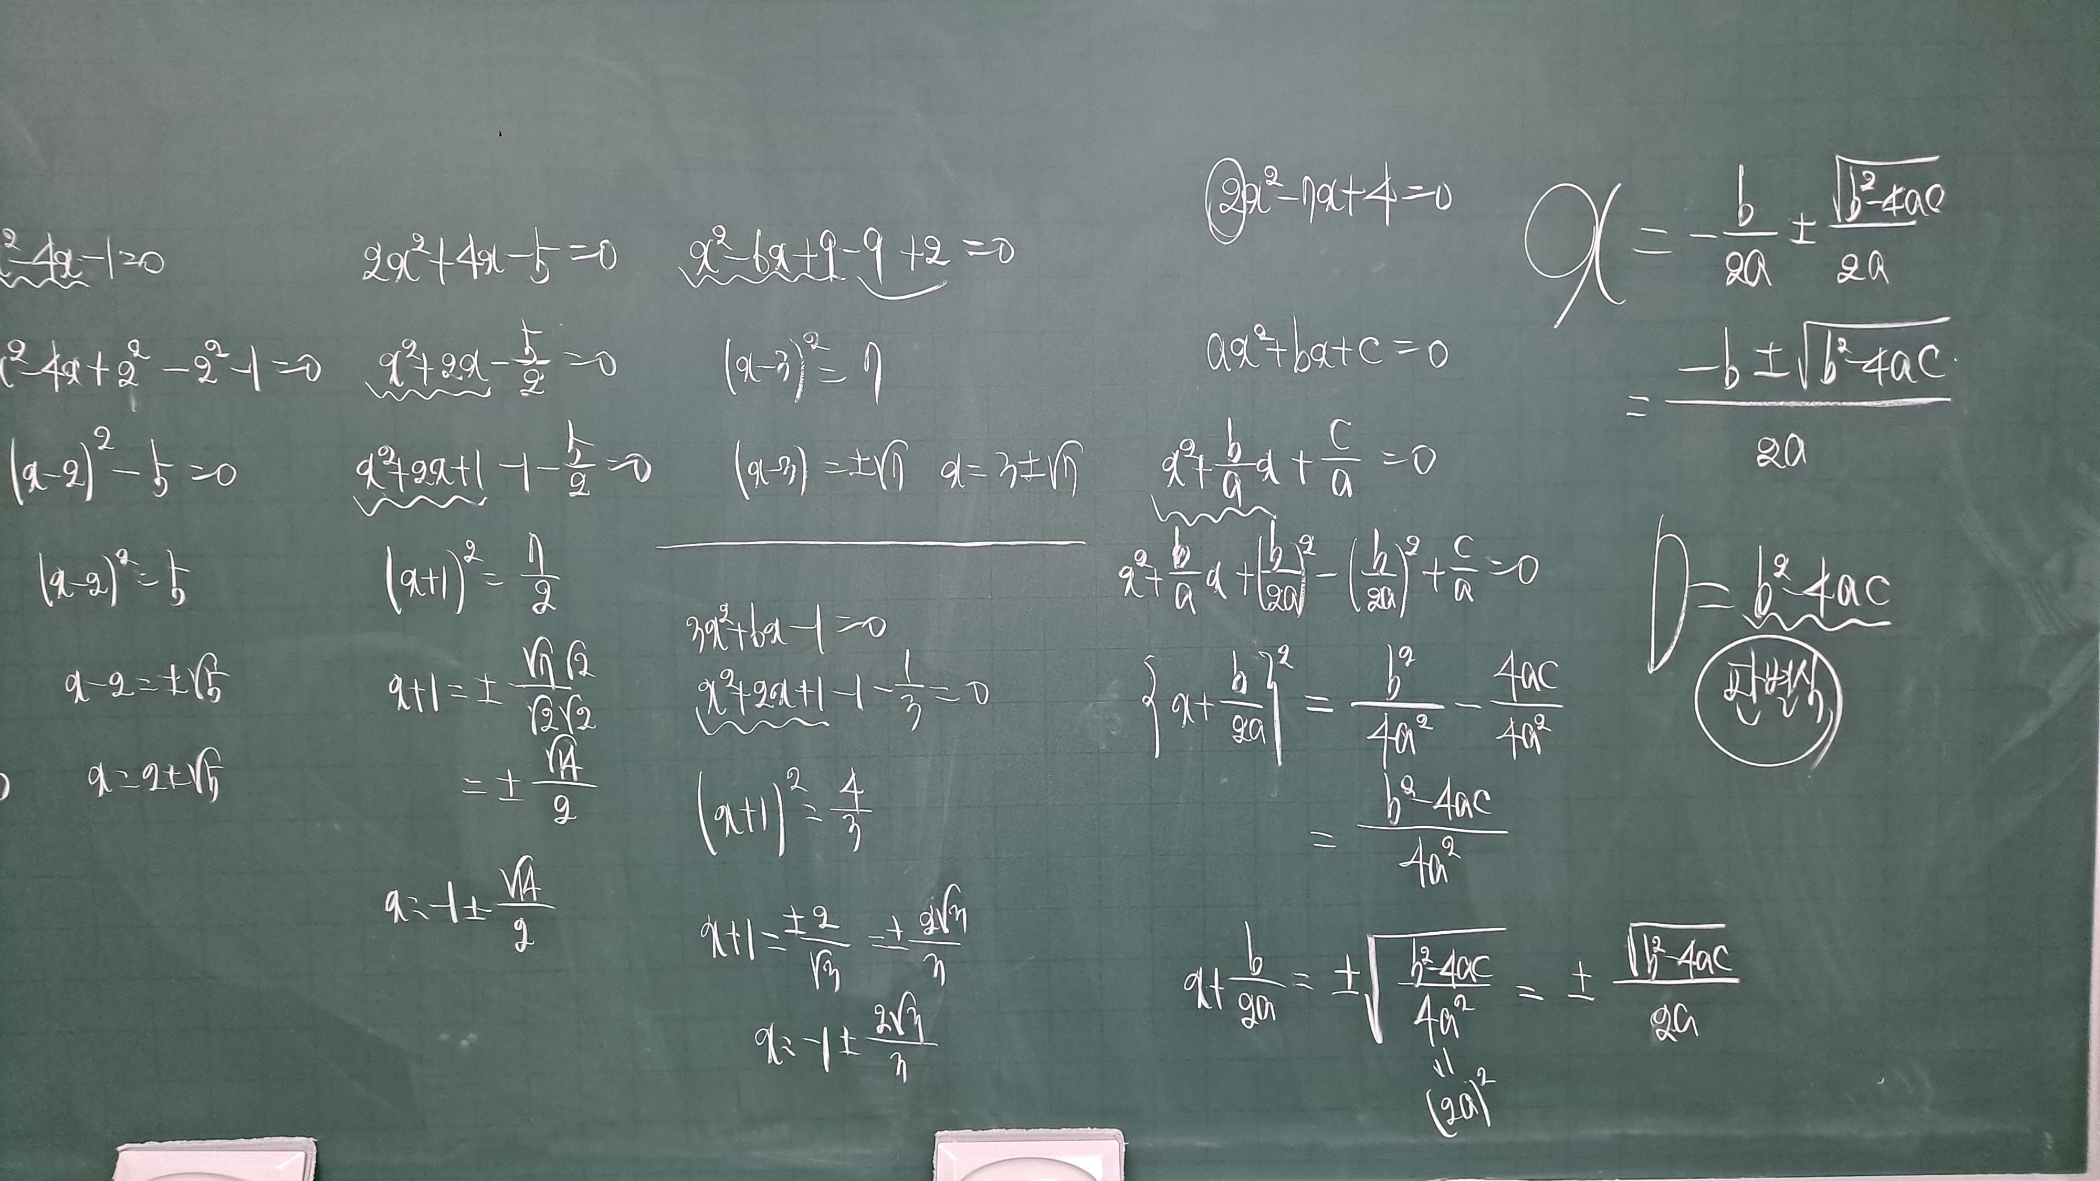 x²-4x-1=0
x²-4x+2²-2²-1=0
(x-2)²-5=0
(x-2)²=5
x-2=±√5
x=2±√5
2x²+4x-5=0
x²+2x-5/2=0
x²+2x+1-1-5/2=0
(x+1)²=7/2
x+1=±√7√2/√2√2
=±√14/2
x=-1±√14/2
x²-6x+9-9+2=0
(x-3)²=7
(x-3)=±√7 x=3±√7
3x²+6x-1=0
x²+2x+1-1-1/3=0
(x+1)²=4/3
x+1=±2/√3=±2√3/3
x=-1±2√3/3
2x²-7x+4=0
ax²+bx+c=0
x²+b/a x+c/a=0
x²+b/a x+(b/2a)²-(b/2a)²+c/a=0
{x+b/2a}²=b²/4a²-4ac/4a²
=b²-4ac/4a²
x+b/2a=±√b²-4ac/4a²=±√b²-4ac/2a
=
(2a)²
x=-b/2a±√b²-4ac/2a
=-b±√b²-4ac/2a
D=b²-4ac
판별식